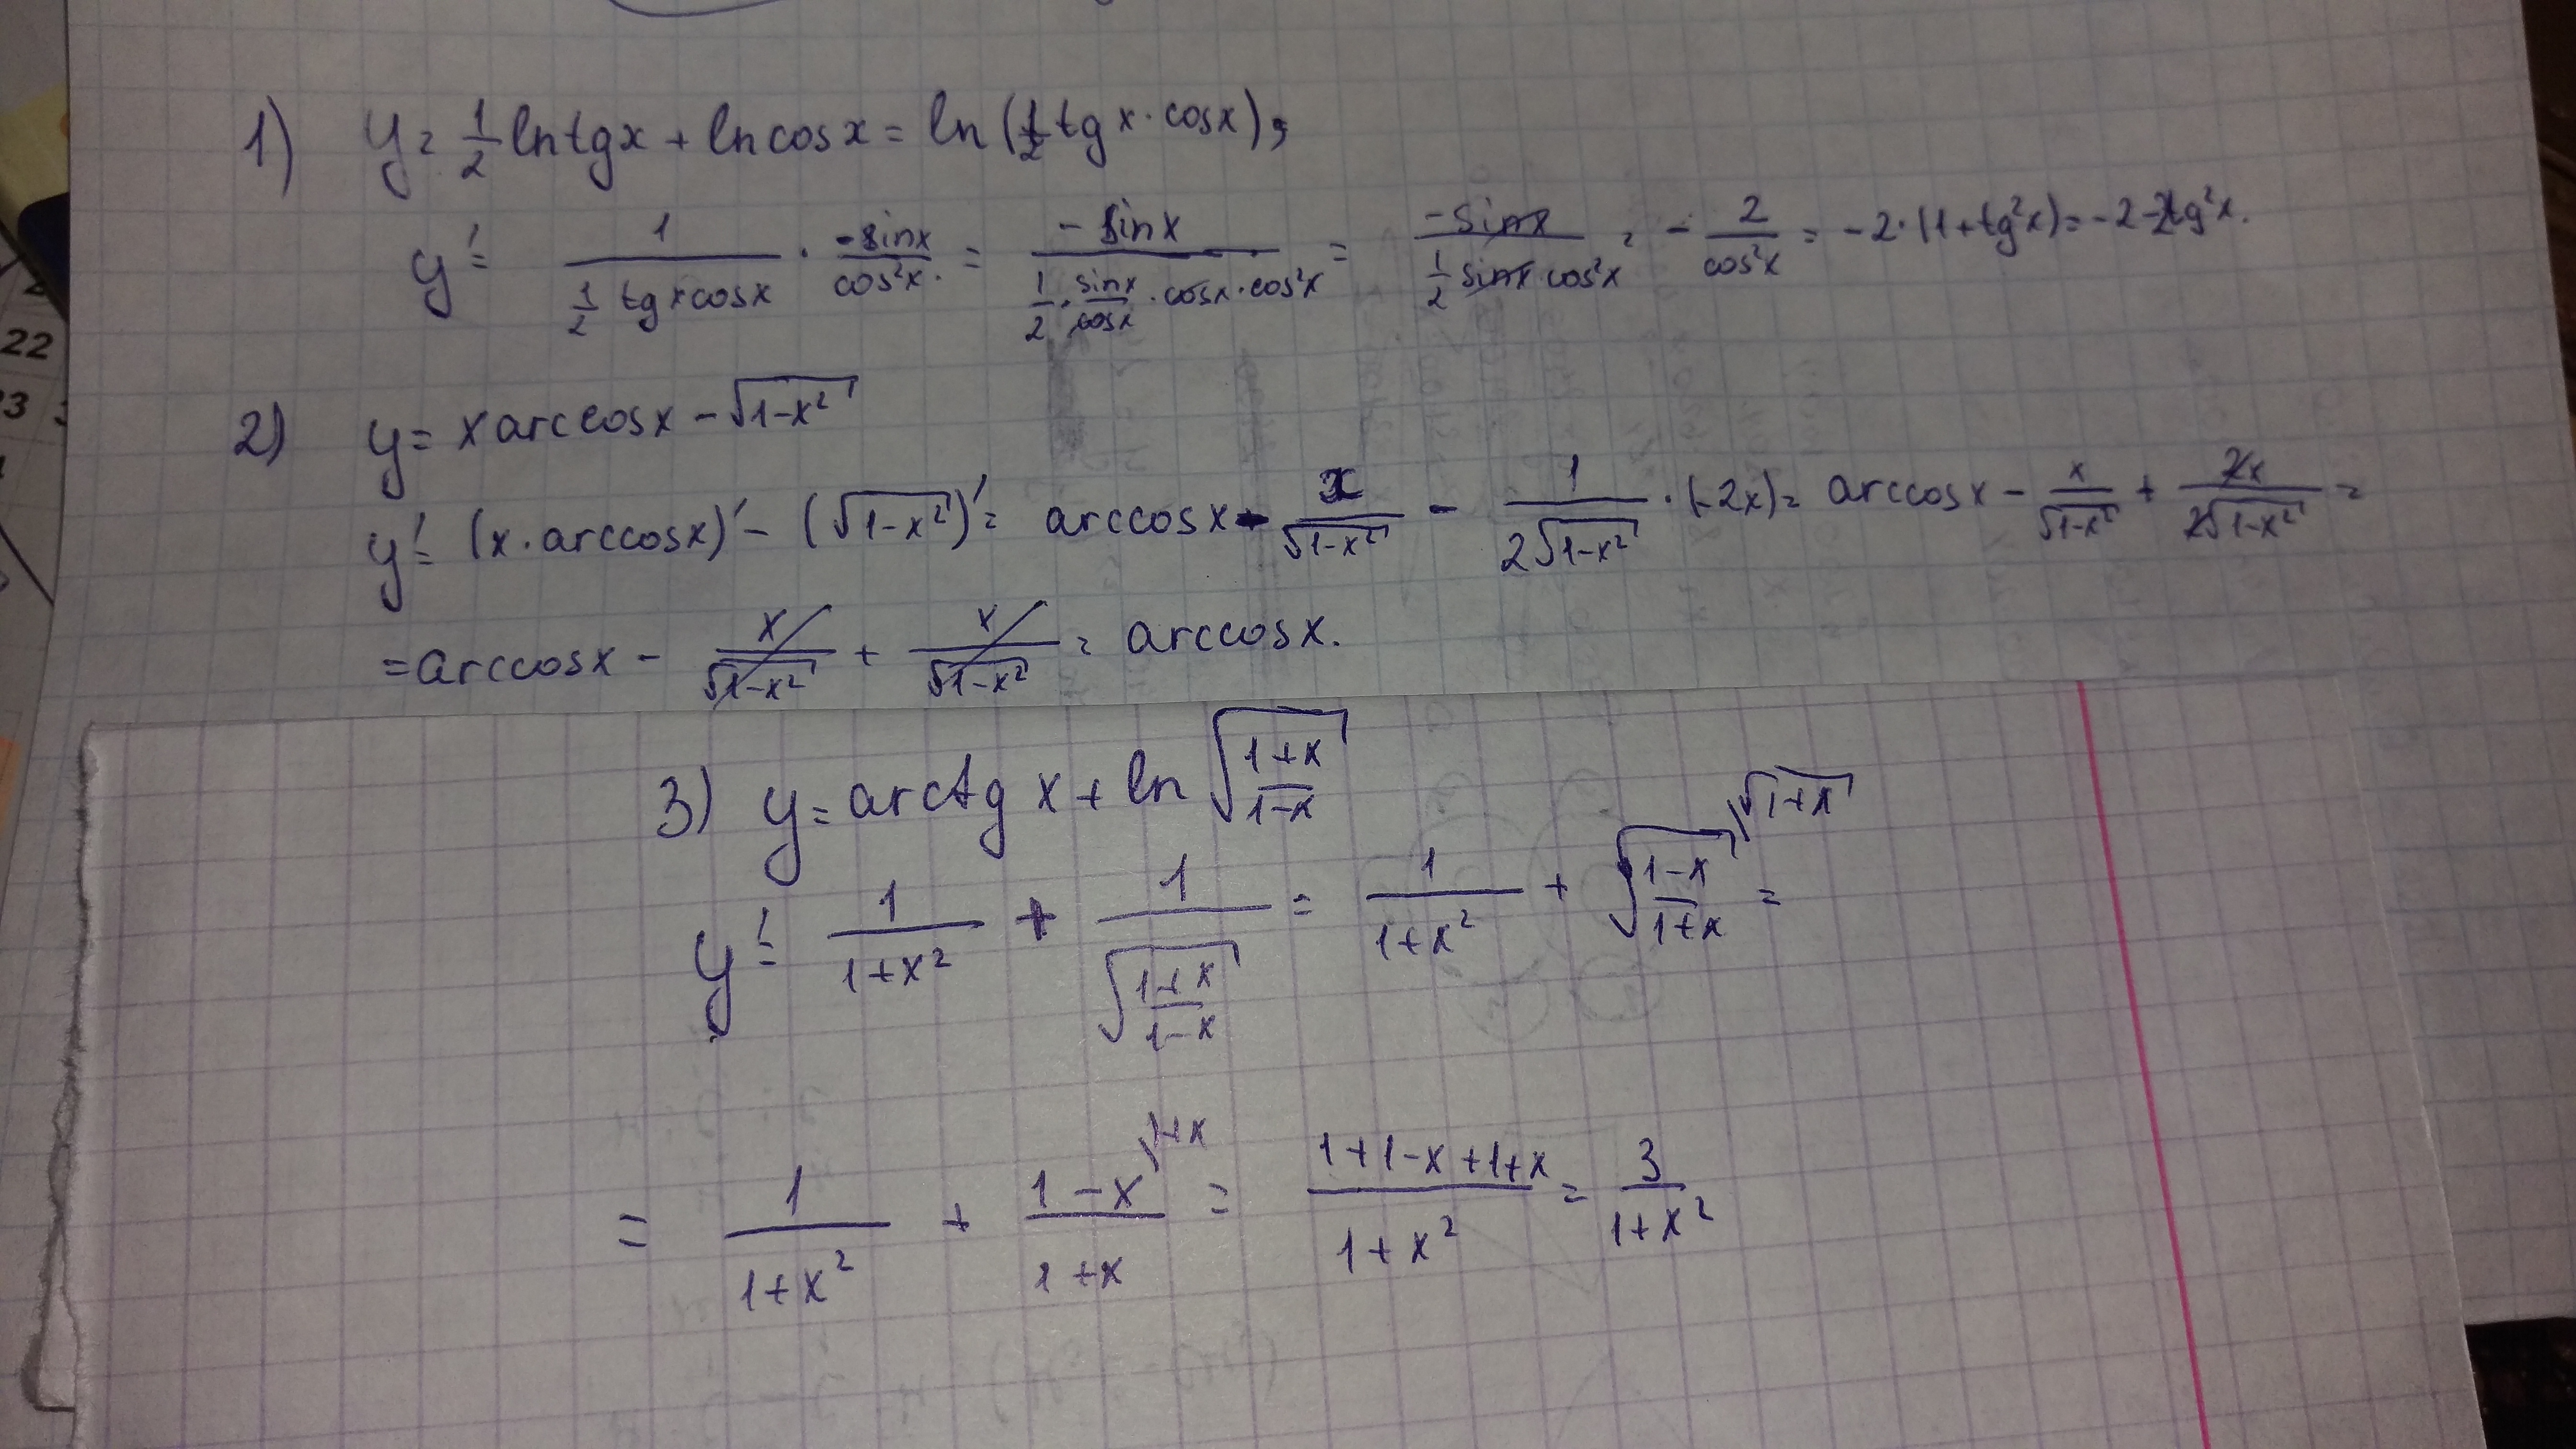 1) y = 1/2 ln tg x + ln cos x = ln (1/2 tg x · cos x);
y' = 1/(1/2 tg x cos x) · (-sin x)/(cos²x) = (-sin x)/(1/2 · sin x/cos x · cos x · cos²x) = (-sin x)/(1/2 sin x cos²x) = - 2/cos²x = -2·(1+tg²x) = -2-2tg²x.
2) y = x arccos x - √(1-x²)
y' = (x·arccos x)' - (√(1-x²))' = arccos x - x/√(1-x²) - 1/(2√(1-x²)) · (-2x) = arccos x - x/√(1-x²) + 2x/(2√(1-x²)) =
= arccos x - x/√(1-x²) + x/√(1-x²) = arccos x.
3) y = arctg x + ln √((1+x)/(1-x))
y' = 1/(1+x²) + 1/√((1+x)/(1-x)) = 1/(1+x²) + √((1-x)/(1+x)) \√(1+x) =
= 1/(1+x²) + (1-x)/(1+x) \1+x = (1+1-x+1+x)/(1+x²) = 3/(1+x²)
22